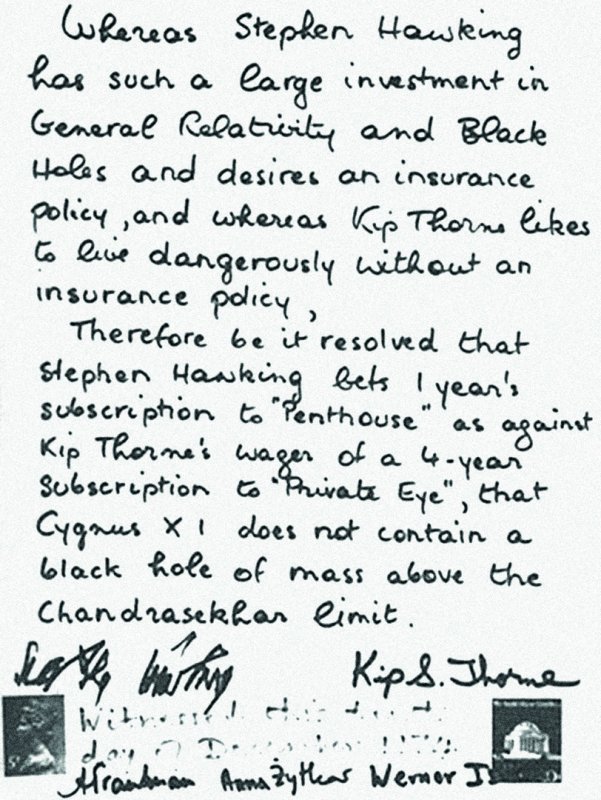 Whereas Stephen Hawking
has such a large investment in
General Relativity and Black
Holes and desires an insurance
policy, and whereas Kip Thorne likes
to live dangerously without an
insurance policy,
Therefore be it resolved that
Stephen Hawking bets 1 year's
subscription to "Penthouse" as against
Kip Thorne's wager of a 4-year
subscription to "Private Eye", that
Cygnus X 1 does not contain a
black hole of mass above the
Chandrasekhar limit.
Kip S. Thorne
Witnessed this
day of December
Anna Żytkow Werner